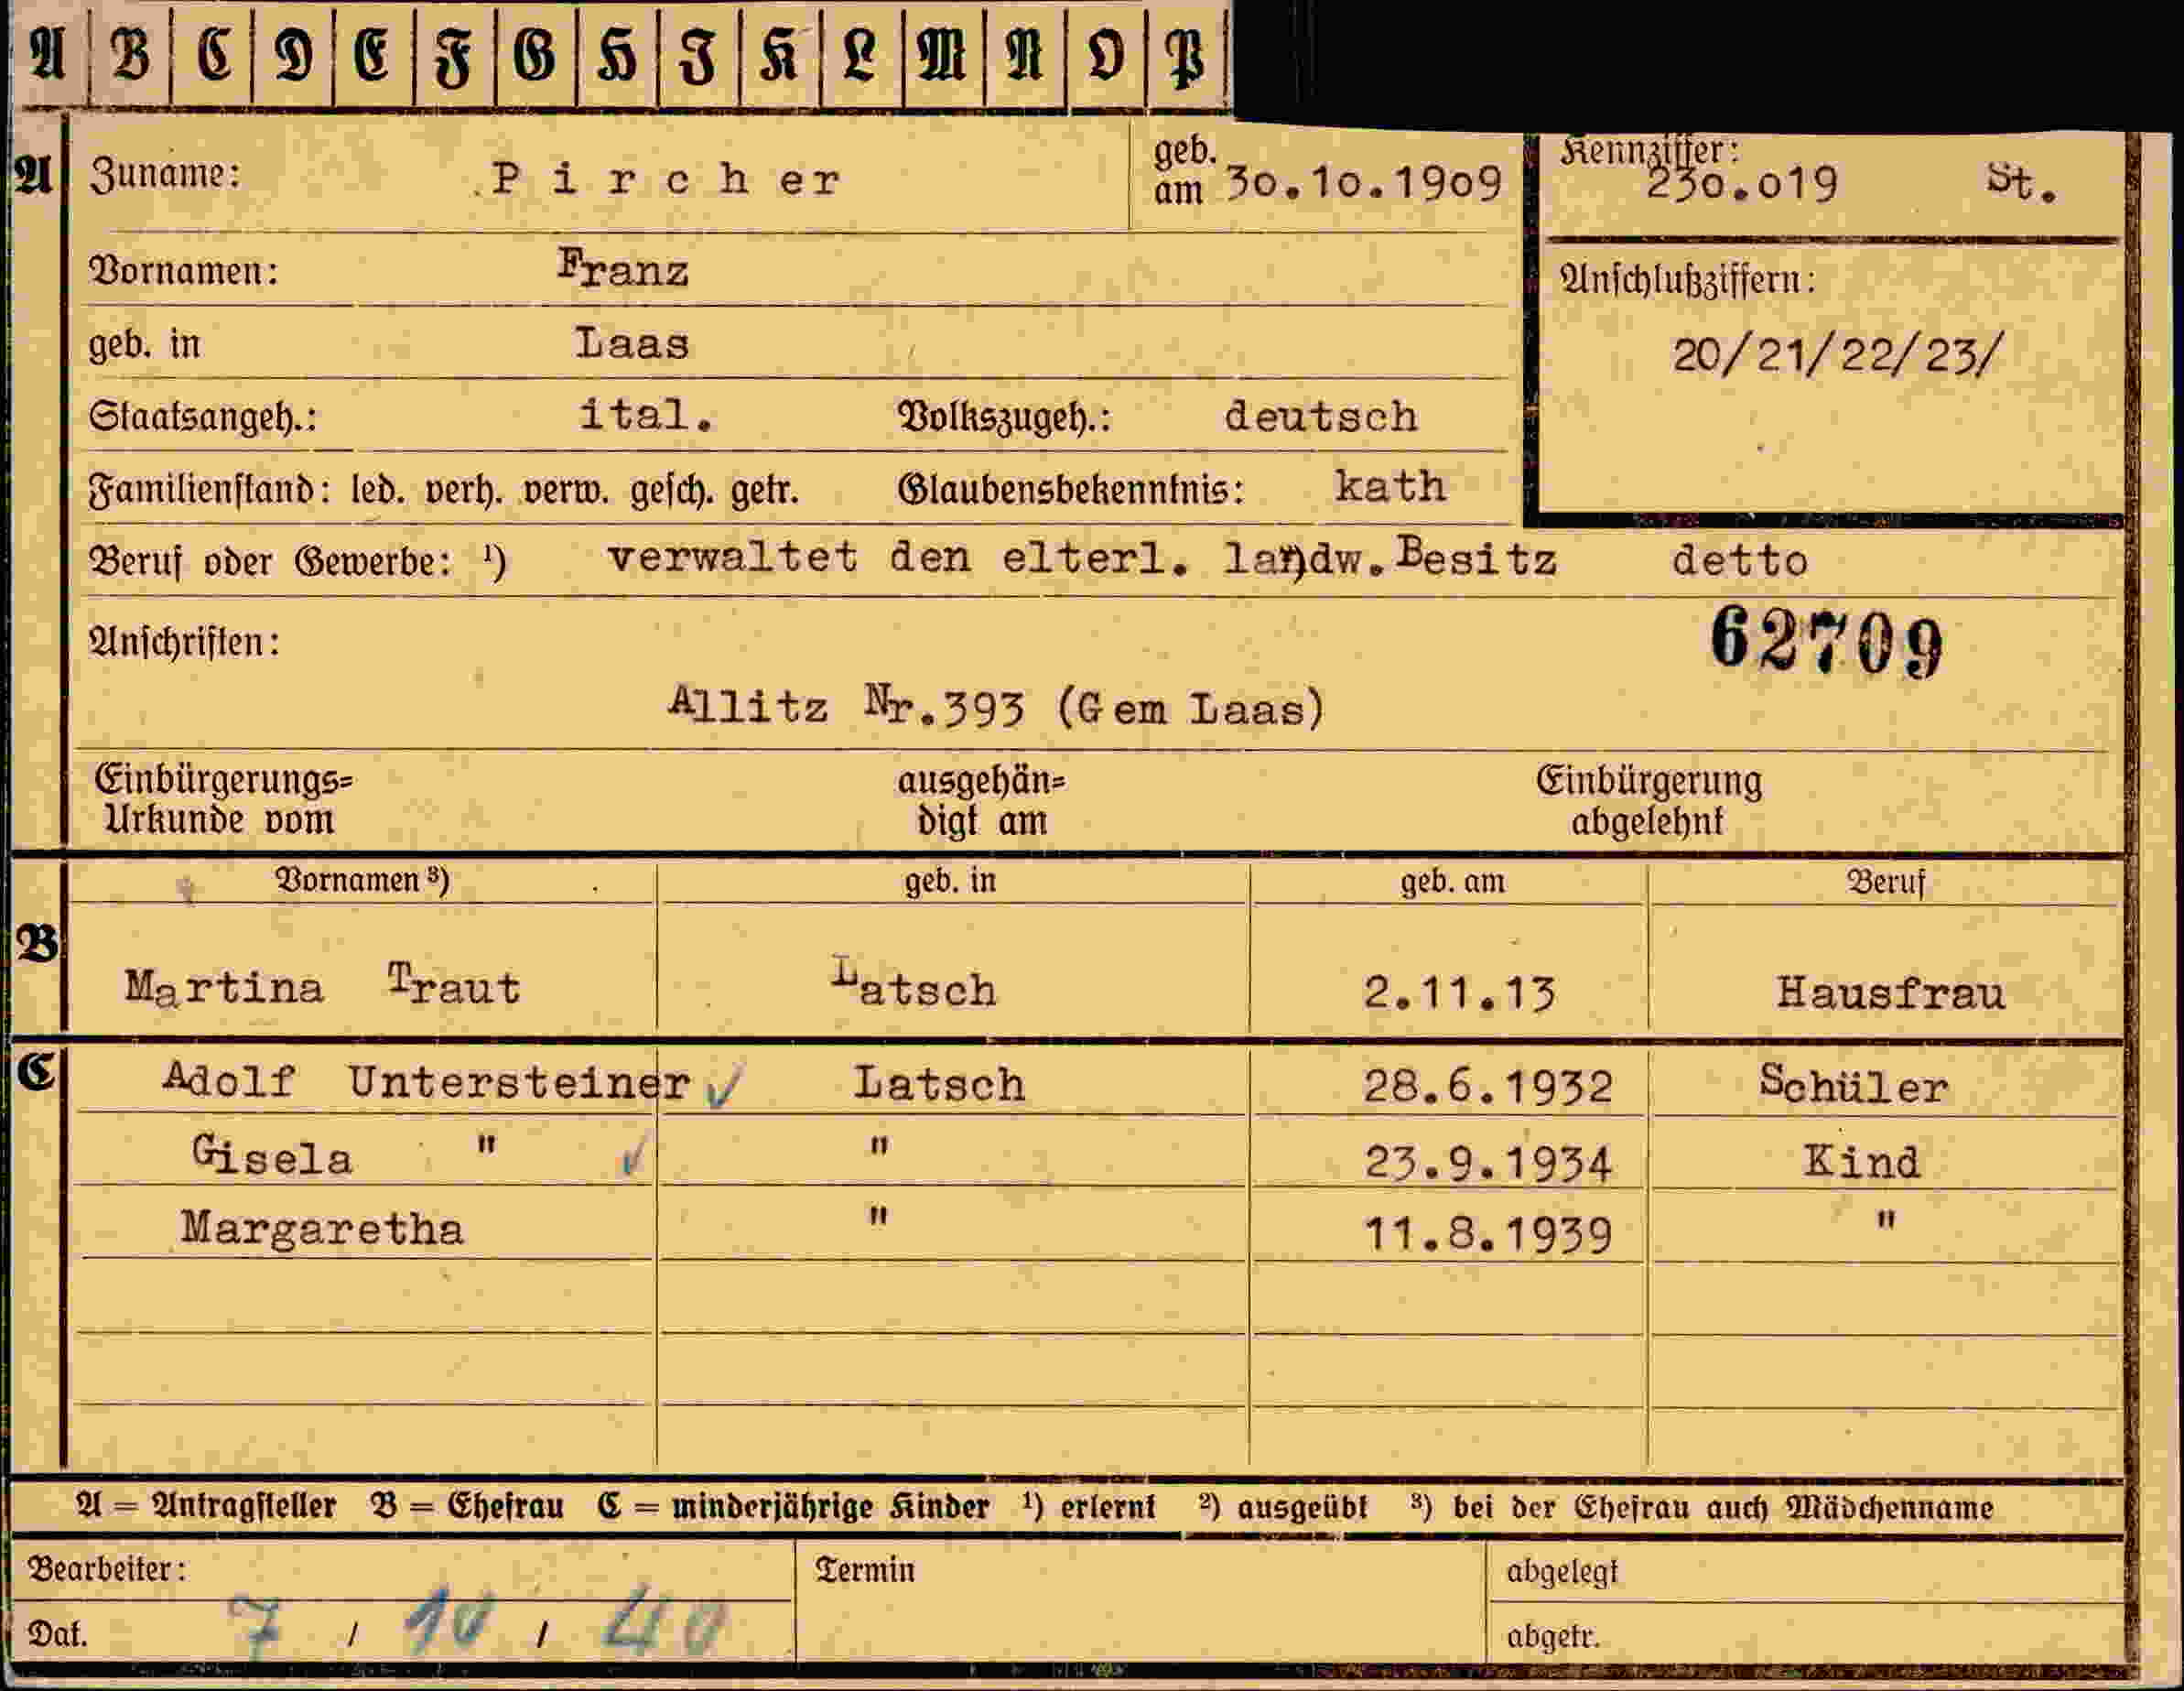 A B C D E F G H I K L M N O P
A Zuname: Pircher geb. am 30.10.1909 Kennziffer: 230.019 St.
Vornamen: Franz Anschlußziffern:
geb. in Laas 20/21/22/23/
Staatsangeh.: ital. Volkszugeh.: deutsch
Familienstand: led. verh. verw. gesch. getr. Glaubensbekenntnis: kath
Beruf oder Gewerbe: ¹) verwaltet den elterl. landw. Besitz detto
Anschriften: 62709
Allitz Nr.393 (Gem Laas)
Einbürgerungs= ausgehän= Einbürgerung
Urkunde vom digt am abgelehnt
Vornamen ³) geb. in geb. am Beruf
B
Martina Traut Latsch 2.11.13 Hausfrau
C Adolf Untersteiner ✓ Latsch 28.6.1932 Schüler
Gisela " ✓ " 23.9.1934 Kind
Margaretha " 11.8.1939 "
A = Antragsteller B = Ehefrau C = minderjährige Kinder ¹) erlernt ²) ausgeübt ³) bei der Ehefrau auch Mädchenname
Bearbeiter: Termin abgelegt
Dat. 7 / 10 / 40 abgetr.